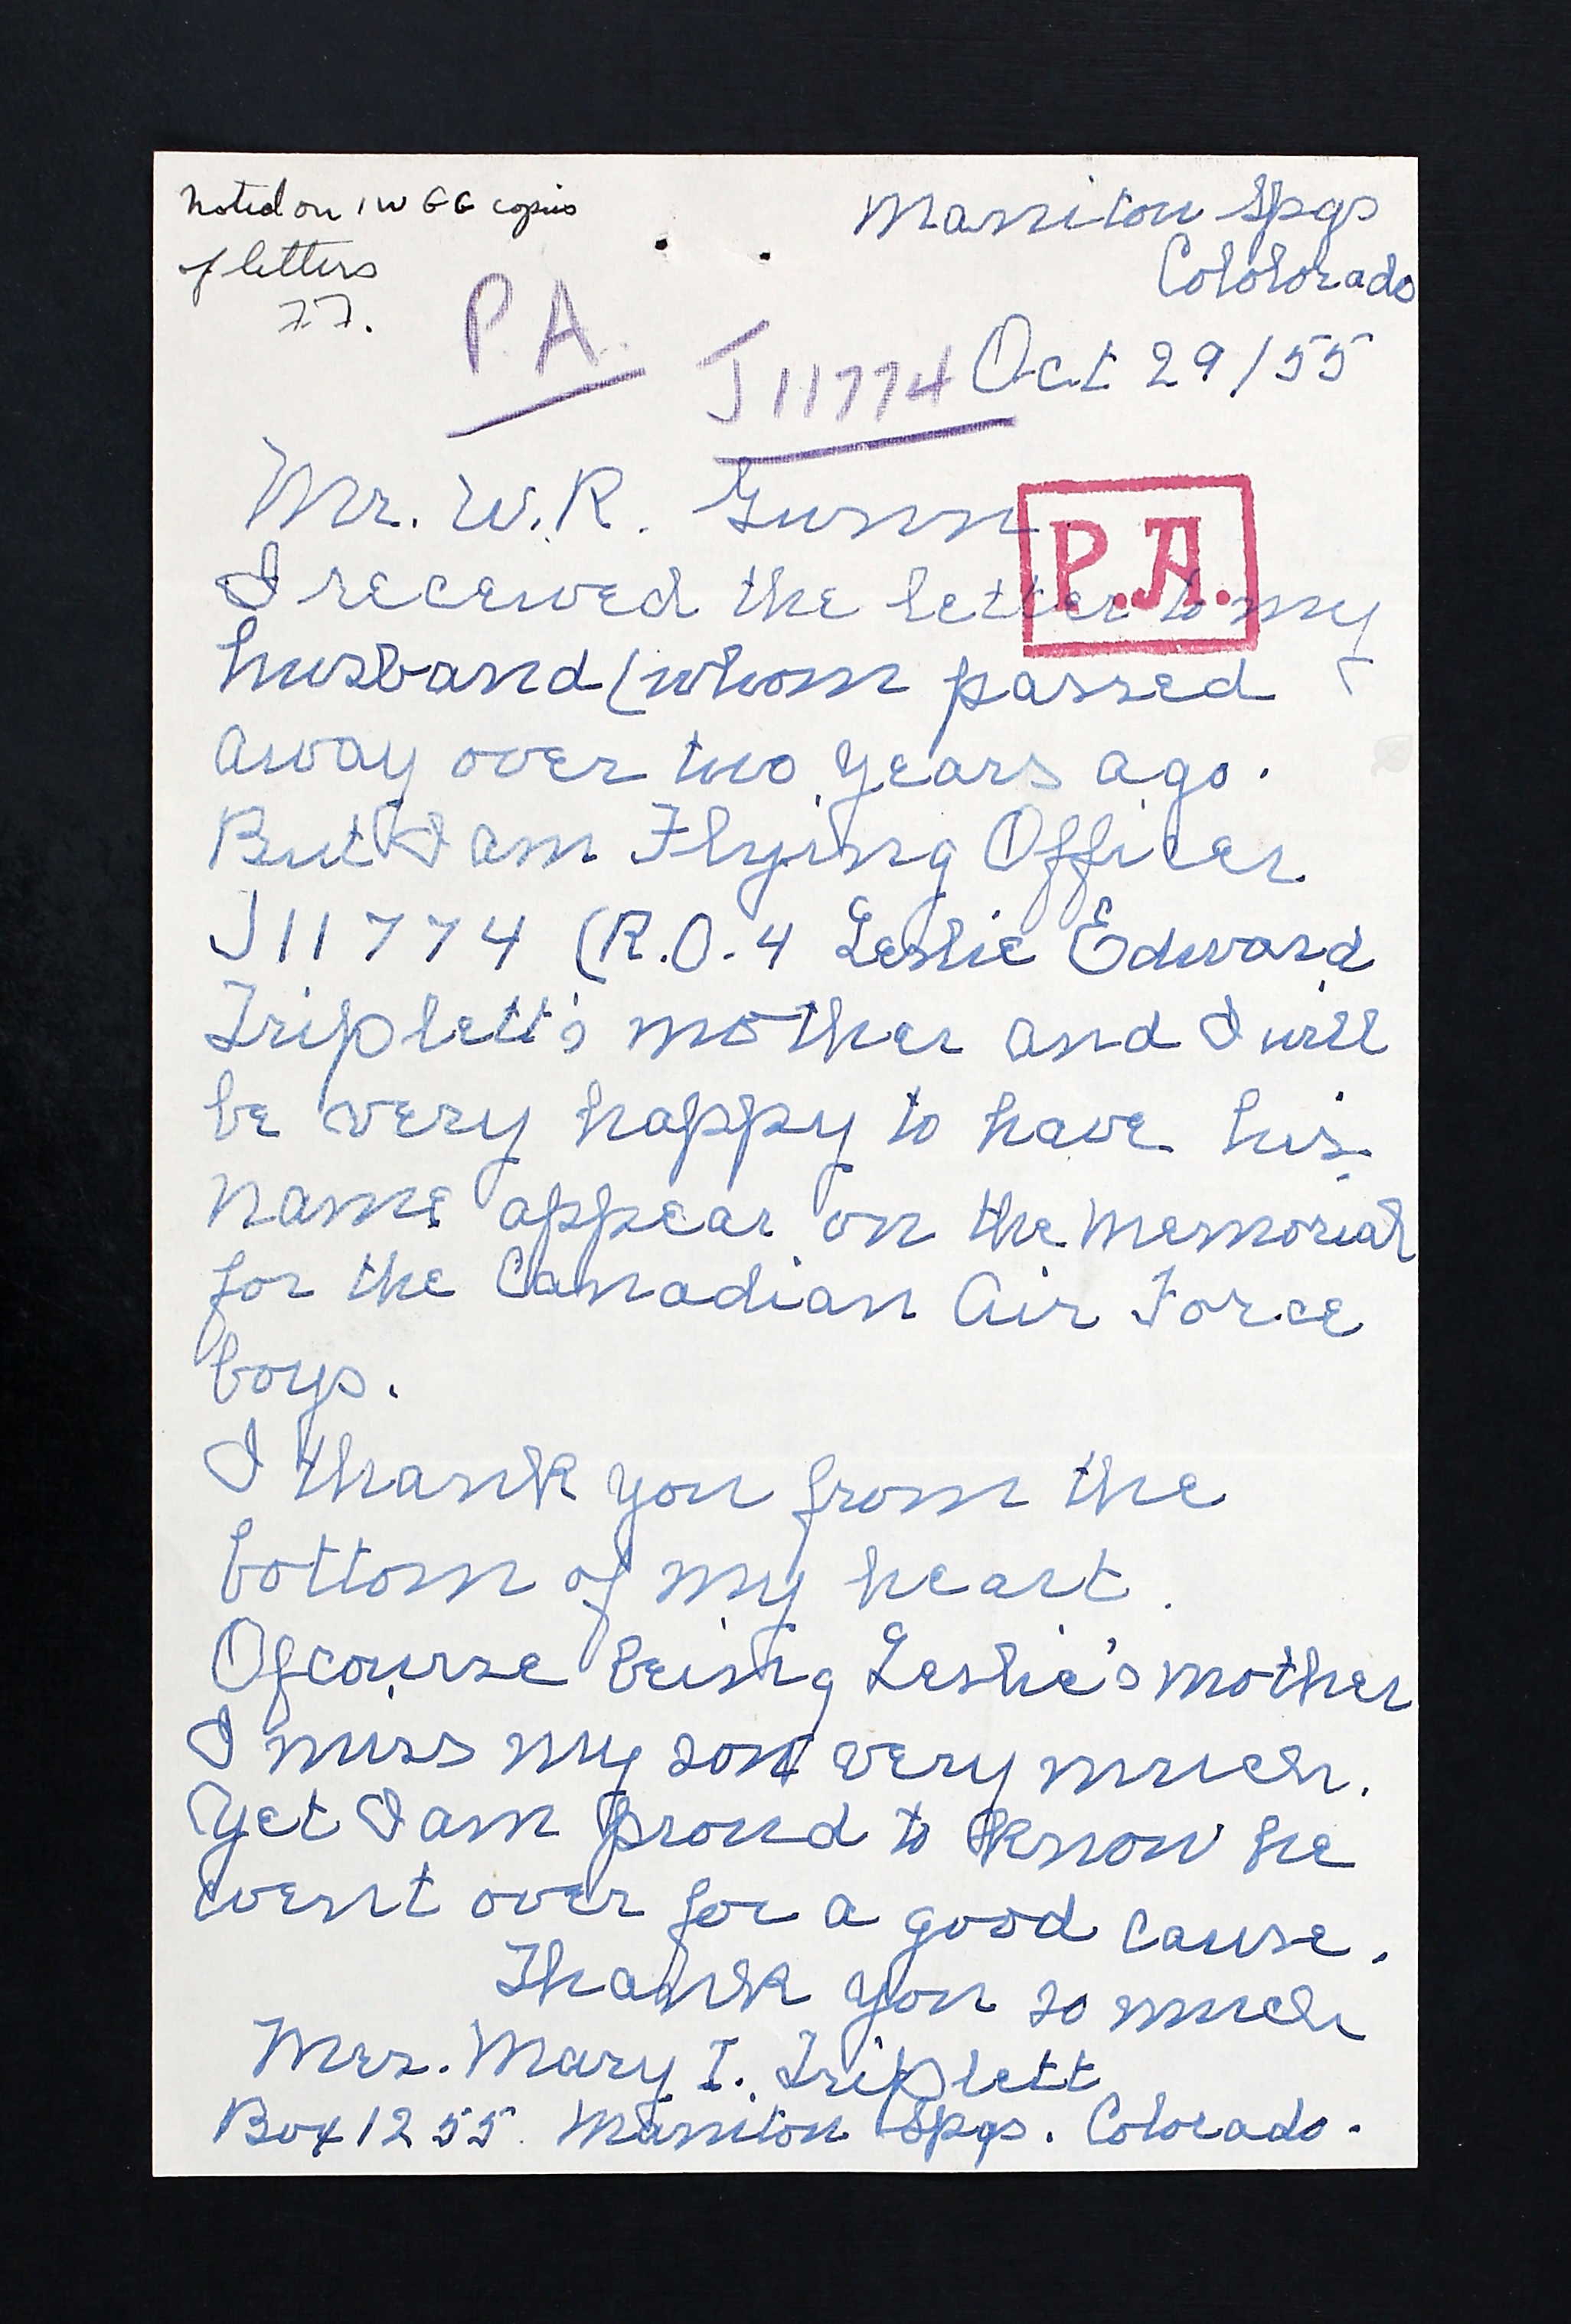 noted on IWGG copies
of letters
77.
Manitou Spgs
Cololorado
P.A.
J11774
Oct 29/55
Mr. W.R. Gunn
P.A.
I received the letter to my
husband (whom passed
away over two years ago.
But I am Flying Officer
J11774 (R.O.4 Leslie Edward
Triplett's mother and I will
be very happy to have his
name appear on the Memorial
for the Canadian Air Force
boys.
I thank you from the
bottom of my heart.
Ofcourse being Leslie's mother
I miss my son very much.
Yet I am proud to know he
went over for a good cause.
Thank you so much
Mrs. Mary I. Triplett
Box 1255. Manitou Spgs. Colorado.